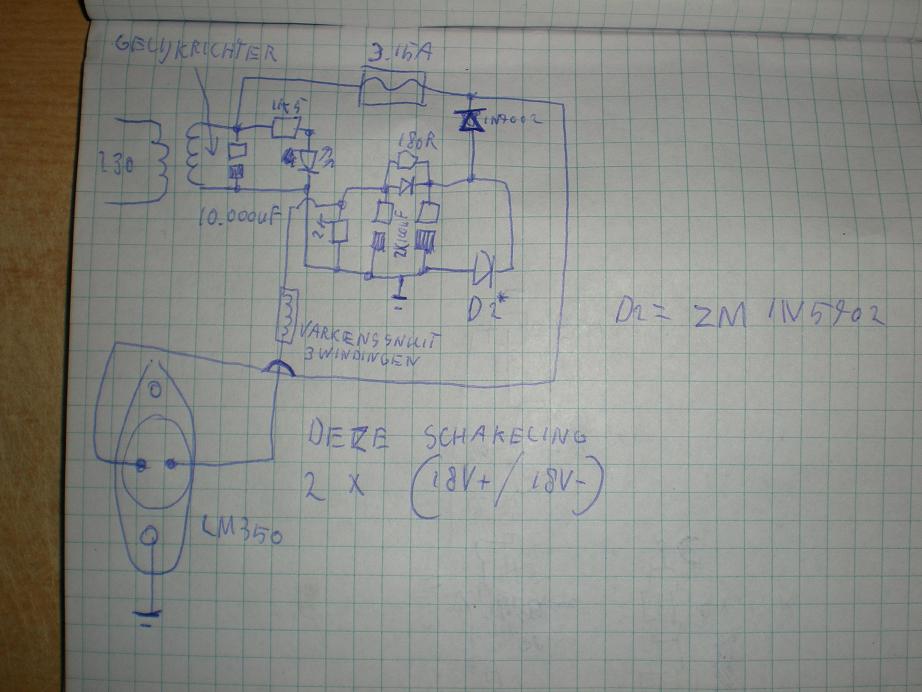 GELIJKRICHTER
3.15A
1K5
1N4002
180R
230
10.000uF
2K
2X100uF
D2*
D2= ZM 1N5402
VARKENSSNUIT
3 WINDINGEN
DEZE SCHAKELING
2 X (18V+/18V-)
LM350